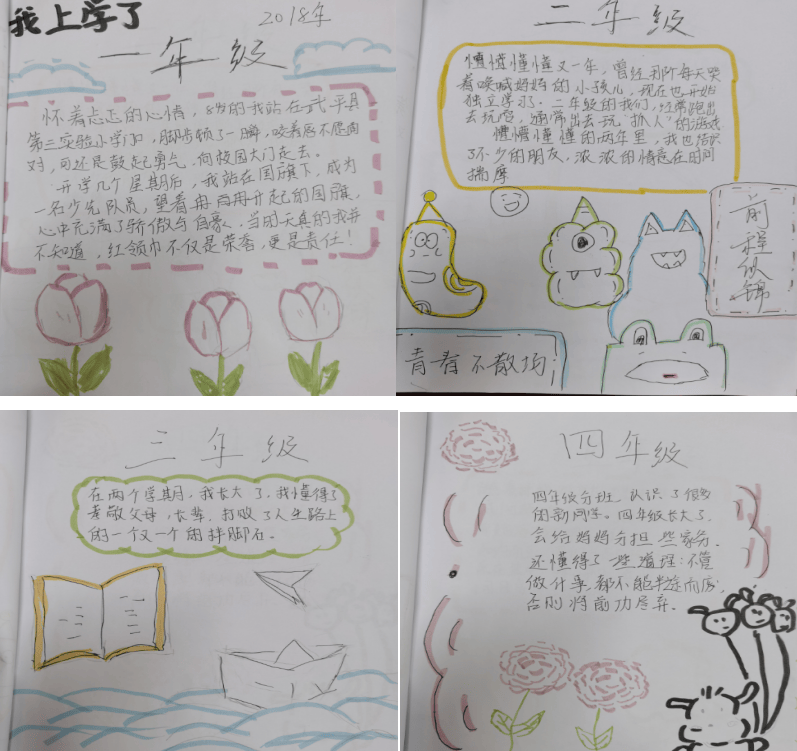 我上学了
2018年
一年级
怀着忐忑的心情，8岁的我站在武平县
第二实验小学门口，脚步顿了一瞬，咬着唇不愿面
对，可还是鼓起勇气，向校园大门走去。
开学几个星期后，我站在国旗下，成为
一名少先队员，望着冉冉升起的国旗，
心中充满了骄傲与自豪，当时天真的我并
不知道，红领巾不仅是荣誉，更是责任！
二年级
懵懵懂懂又一年，曾经那个每天哭
着唤喊妈妈的小孩儿，现在也开始
独立学习。二年级的我们，经常跑出
去玩啦，通常出去玩"抓人"的游戏
懵懵懂懂的两年里，我也结识
了不少的朋友，浓浓的情意在时间
揣摩
前程似锦
青春不散场；
三年级
在两个学期，我长大了，我懂得了
孝敬父母，长辈，打败了人生路上
的一个又一个的拌脚石。
四年级
四年级分班，认识了很多
的新同学。四年级长大了，
会给妈妈分担些家务。
还懂得了一些道理：不管
做什事都不能半途而废，
否则将前功尽弃。